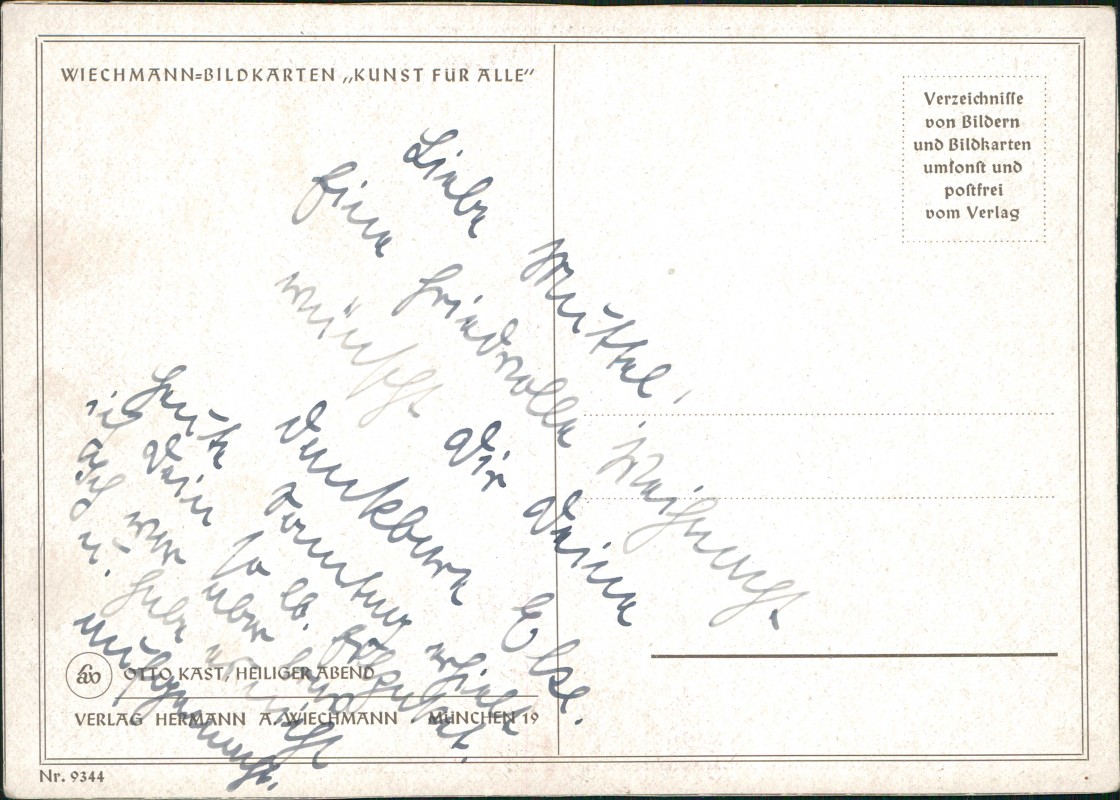 WIECHMANN=BILDKARTEN „KUNST FÜR ALLE“
Verzeichnisse
von Bildern
und Bildkarten
umsonst und
postfrei
vom Verlag
Liebe Muttel,
Eine friedvolle Weihnacht
wünscht Dir Deine
dankbare Else.
Heute Sonntag erhielt
ich Dein so lb.
Ach war aber
u. habe
OTTO KAST, HEILIGER ABEND
VERLAG HERMANN A. WIECHMANN · MÜNCHEN 19
Nr. 9344